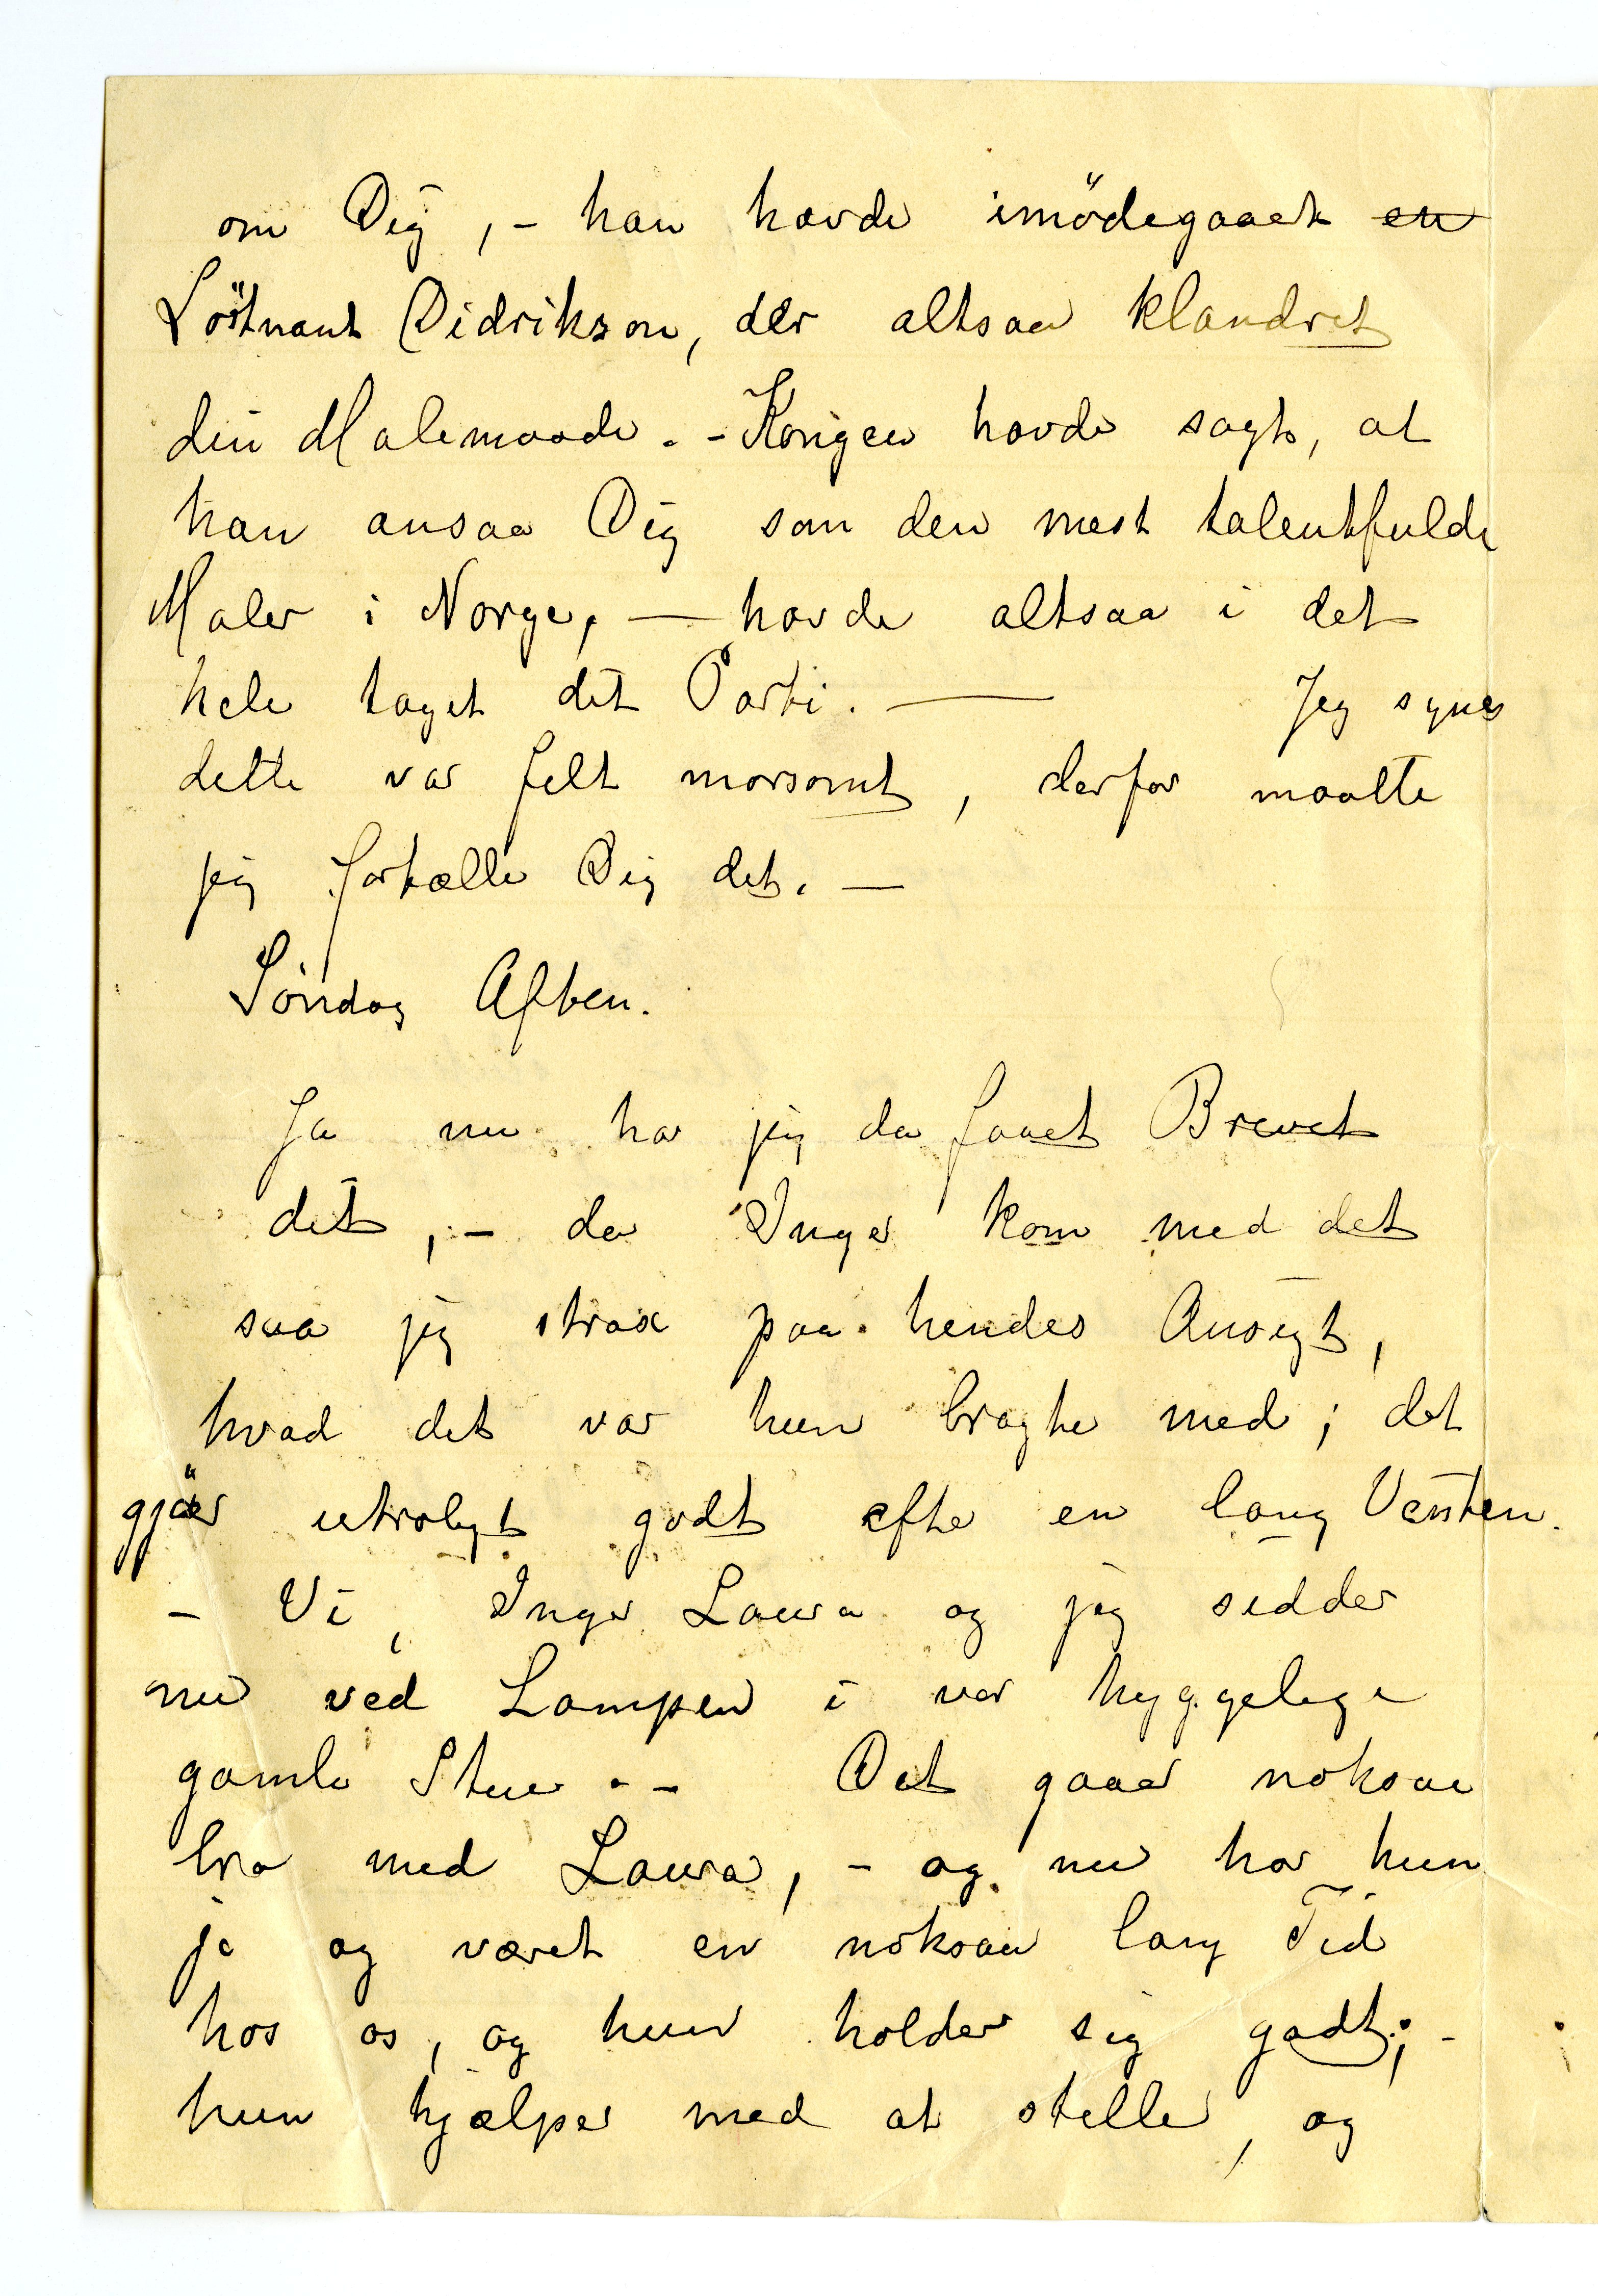 om Dig, - han havde imödegaaet en
Löitnant Didrikson, der altsaa klandret
din Malemaade. - Kongen havde sagt, at
han ansaa Dig som den mest talentfulde
Maler i Norge, — havde altsaa i det
hele taget dit Parti. — Jeg synes
dette var felt morsomt, derfor maatte
jeg fortælle Dig det. —
Söndag Aften.
Ja nu har jeg da faaet Brevet
dit, - da Inger kom med det
saa jeg strax paa hendes Ansigt,
hvad det var hun bragte med; det
gjör utroligt godt efter en lang Venten.
- Vi, Inger Laura og jeg sidder
nu ved Lampen i vor hyggelige
gamle Stue. - Det gaar noksaa
bra med Laura, - og nu har hun
jo og været en noksaa lang Tid
hos os, og hun holder sig godt; -
hun hjælper med at stelle, og